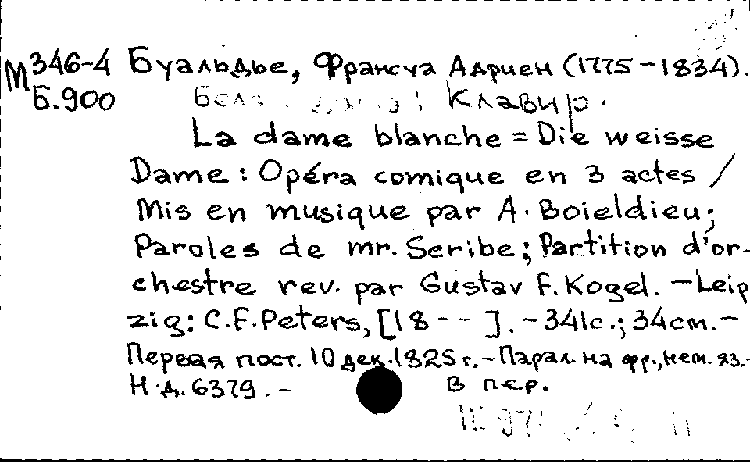 М 346-4 Буальдье, Франсуа Адриен (1775-1834).
Б.900 Клавир.
La dame blanche = Die weisse
Dame : Opéra comique en 3 actes /
Mis en musique par A. Boieldieu;
Paroles de mr. Scribe; Partition d'or-
chestre rev. par Gustav F. Kogel. - Leip
zig: C.F. Peters, [18 - - ]. - 341с.; 34см. -
Первая пост. 10 дек. 1825 г. - Парал. на фр., нем. яз. -
Н.д. 6379. - В пер.